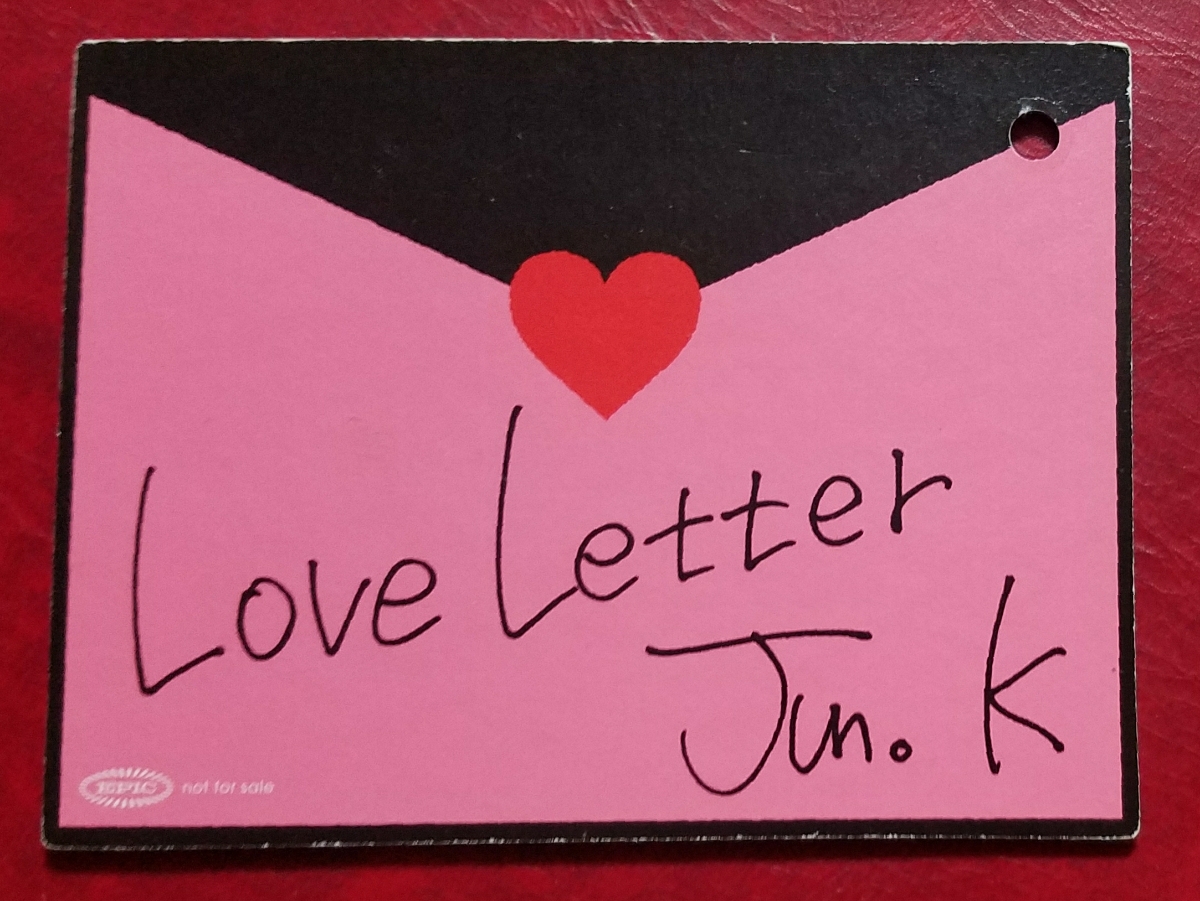 Love Letter
Jun. K
EPIC not for sale